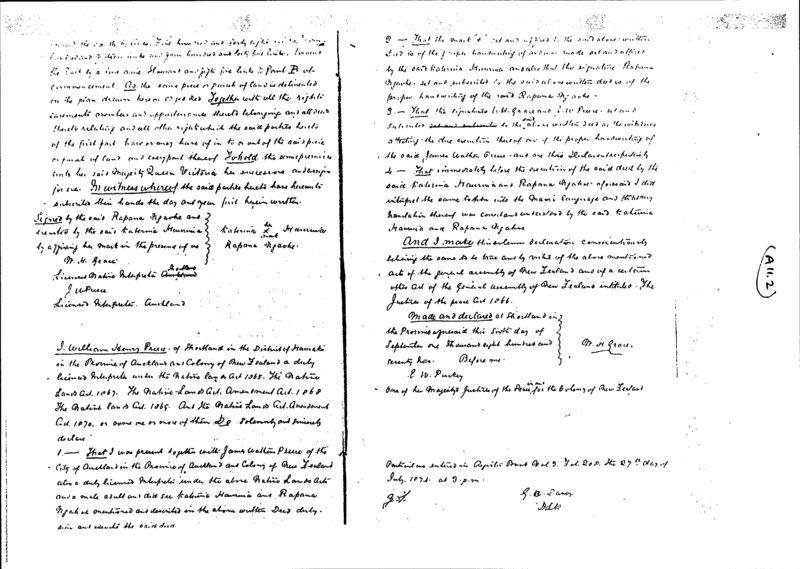 the East by a line nine thousand and fifty five links to Point B of
commencement As the same piece or parcel of land is delineated
on the plan drawn hereon edged red Together with all the rights
easements members and appurtenances thereto belonging and all deeds
thereto relating and all other right which the said parties hereto
of the first part have or may have of in to or out of the said piece
or parcel of land and every part thereof To hold the same premises
unto her said Majesty Queen Victoria her successors and assigns
for ever. In witness whereof the said parties hereto have hereunto
subscribed their hands the day and year first herein written.
Signed by the said Rapana Ngaohe and
executed by the said Katerina Hauruia
by affixing her mark in the presence of us
Katerina her x mark Hauruia
Rapana Ngaohe.
W. H. Grace.
Licensed Native Interpreter Shortland
J W Preece
Licensed Interpreter. Auckland
I. William Henry of Shortland in the District of Hauraki
in the Province of Auckland and Colony of New Zealand a duly
licensed Interpreter under the Native Lands Act 1865. The Native
Lands Act. 1867. The Native Lands Act. Amendment Act. 1868
The Native Lands Act. 1869. And the Native Lands Act. Amendment
Act. 1870. or some one or more of them Do solemnly and sincerely
declare
1. — That I was present together with James Wathan Preece of the
City of Auckland in the Province of Auckland and Colony of New Zealand
also a duly licensed Interpreter under the above Native Lands Acts
and a male adult and did see Katerina Hauruia and Rapana
Ngaohe mentioned and described in the above written Deed duly
sign and execute the said deed
2 — That the mark "x" set and affixed to the said above written
Deed is of the proper handwriting of made set and affixed
by the said Katerina Hauruia and also that the signature Rapana
Ngaohe set and subscribed to the said above written deed is of the
proper handwriting of the said Rapana Ngaohe -
3. — That the signatures W. H. Grace and J. W. Preece set and
subscribed to the said above written deed as the witnesses
attesting the due execution thereof are of the proper handwriting of
the said James Wathan Preece and me this Declarant respectively
4 — That immediately before the execution of the said deed by the
said Katerina Hauruia and Rapana Ngaohe aforesaid I did
interpret the same to them into the Maori language and that my
translation thereof was correct and understood by the said Katerina
Hauruia and Rapana Ngaohe
And I make this solemn declaration conscientiously
believing the same to be true and by virtue of the above mentioned
Acts of the general assembly of New Zealand and of a certain
other Act of the General Assembly of New Zealand intituled "The
Justices of the peace Act 1866.
Made and declared at Shortland in
the Province aforesaid this sixth day of
September one thousand eight hundred and
seventy two. Before me
W. H Grace.
E W. Puckey
One of her Majesty's Justices of the Peace in and for the Colony of New Zealand
Particulars entered in Register Book Vol 3. Fol. 200. the 27th day of
July. 1874. at 3. p.m.
(A11.2)